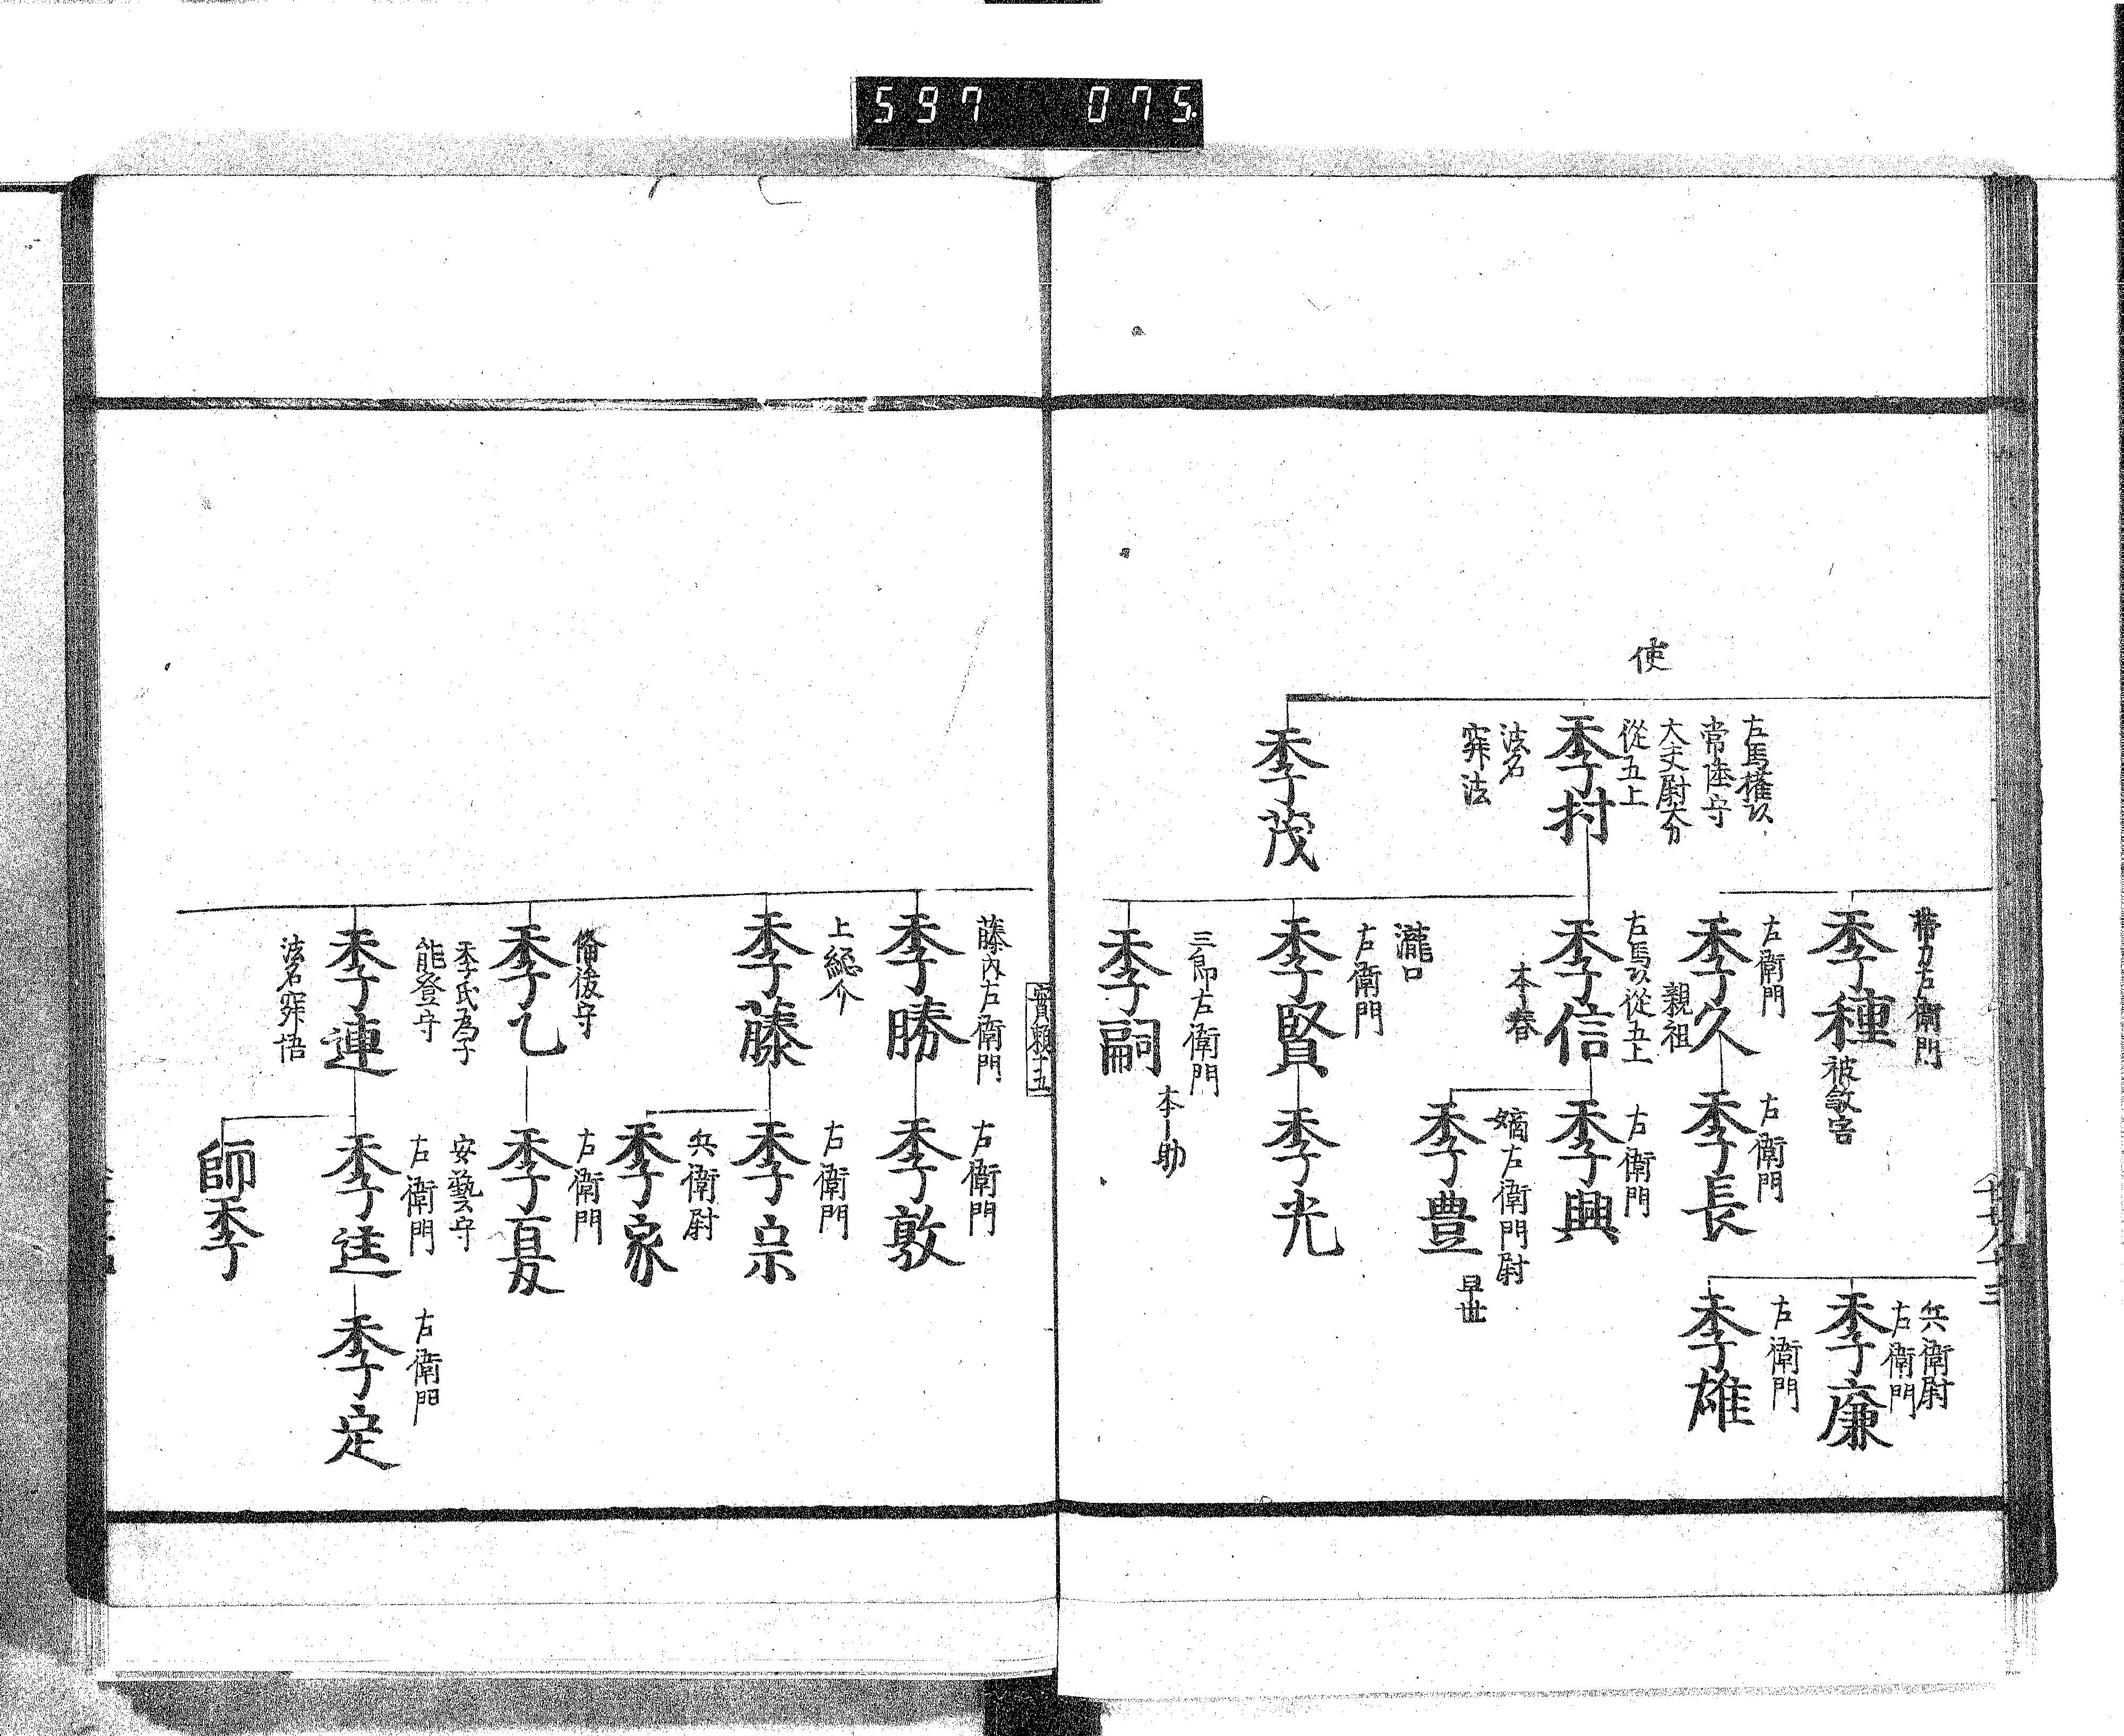 597 075
使
左馬権頭
常陸守
大夫尉大介
従五上
季村
法名
寂法
季茂
帯刀左衛門
季種
被敵害
左衛門
季久
親祖
左馬以従五上
季信
本春
瀧口
左衛門
季賢
三郎左衛門
季嗣
本助
左衛門
季長
左衛門
季興
嫡左衛門尉
季豊
早世
季光
兵衛尉
左衛門
季廉
左衛門
季雄
實頼十五
藤内左衛門
季勝
上総介
季藤
備後守
季乙
季氏為子
能登守
季連
法名寂悟
左衛門
季敦
左衛門
季宗
兵衛尉
季家
左衛門
季夏
安藝守
左衛門
季遠
師季
左衛門
季定